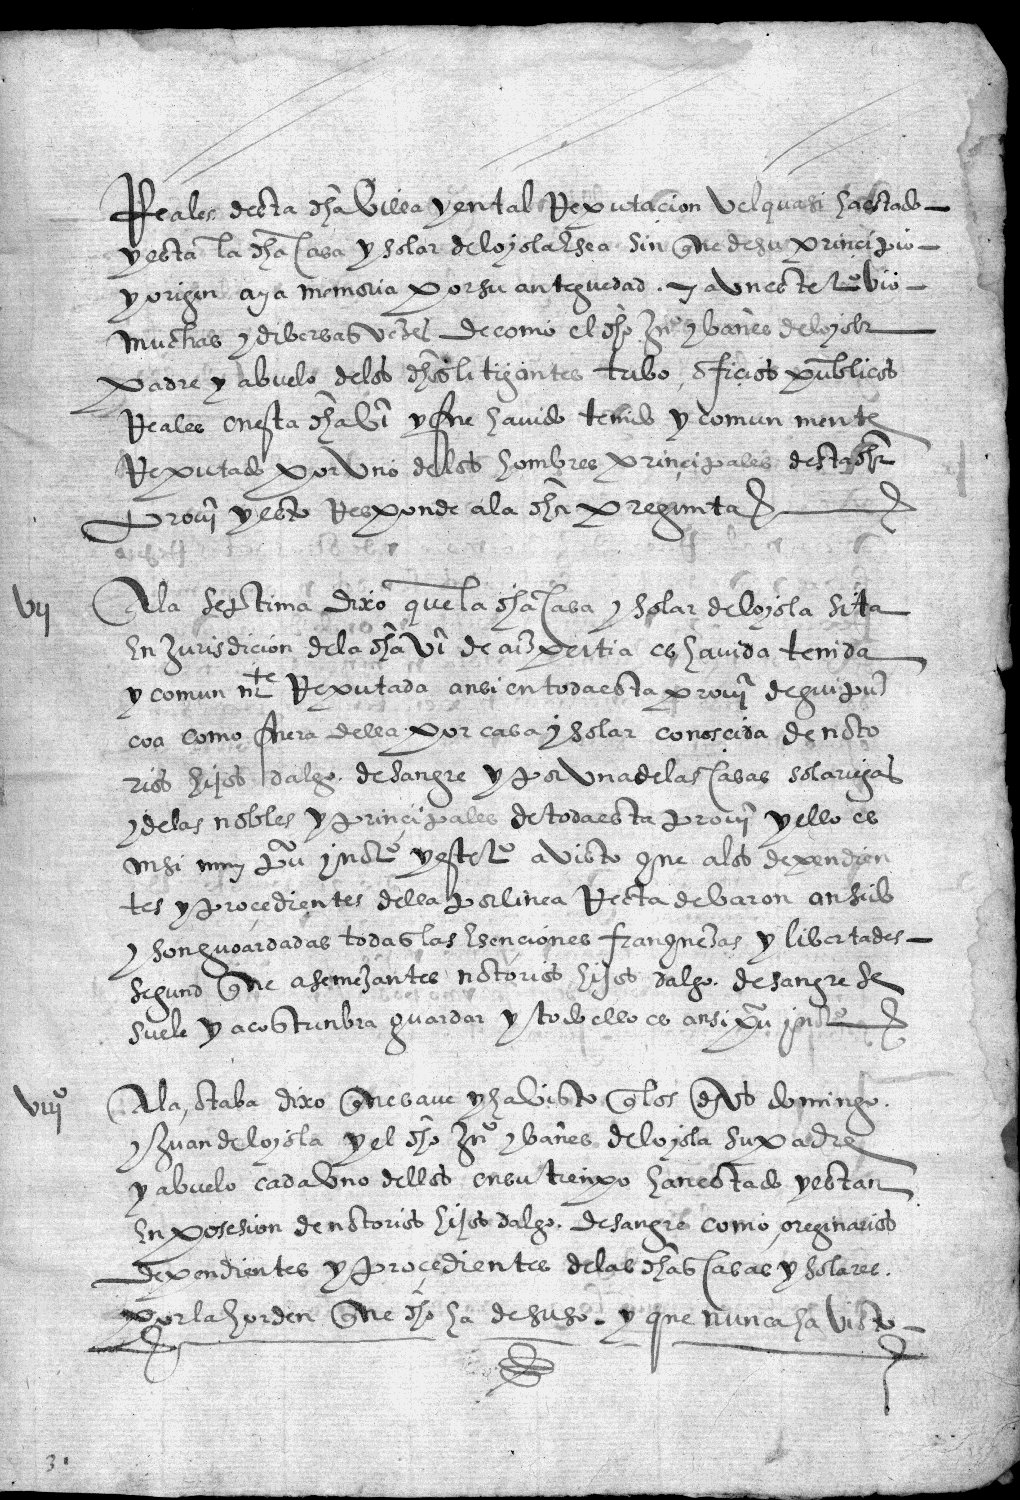 Reales desta dha villa y en tal Reputacion vel quasi ha estado
y esta la dha casa y solar de loyola Ehsea sin que de su principio
y origin aya memoria por su anteguedad. y aun este to vio
muchas y diversas vezes de como el dho Jno ybañes de loyola
padre y abuelo de los dhos litigantes tubo officios publicos
Reales en esta dha va y fue havido tenido y comun mente
Reputado por uno de los hombres principales desta dha
provia y esto Responde a la dha pregunta
vij A la septima dixo que la dha casa y solar de loyola sita
En jurisdicion de la dha va de aizpeitia es havida tenida
y comun mte Reputada ansi en toda esta provia de guipuz
coa como fuera della por casa y solar conoscida de noto
rios hijos dalgo de sangre y por una de las casas solariegas
y de las nobles y principales de toda esta provia y ello es
ansi muy pu y noto y este to a visto que a los dependien
tes y procedientes della por linea Recta de varon an sido
y son guoardadas todas las Esenciones franquezas y libertades
segund que a semejantes notorios hijos dalgo. de sangre se
suele y acostunbra guardar y todo ello es ansi pu y noto
viijo A la octaba dixo que save y ha visto q los dhos domingo.
y Juan de loyola y el dho Jno ybañes de loyola su padre
y abuelo cada uno dellos en su tienpo han estado y estan
En posesion de notorios hijos dalgo. de sangre como oreginarios
dependientes y procedientes de las dhas casas y solares.
por la horden que dho ha de suso. y que nunca ha visto
3